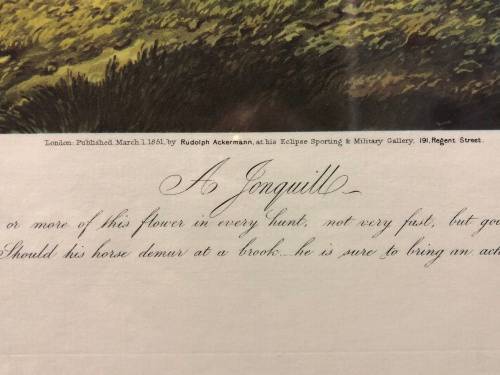 London: Published March 1, 1851, by Rudolph Ackermann, at his Eclipse Sporting & Military Gallery, 191, Regent Street.
A Jonquill
or more of this flower in every hunt, not very fast, but goo
Should his horse demur at a brook he is sure to bring an act